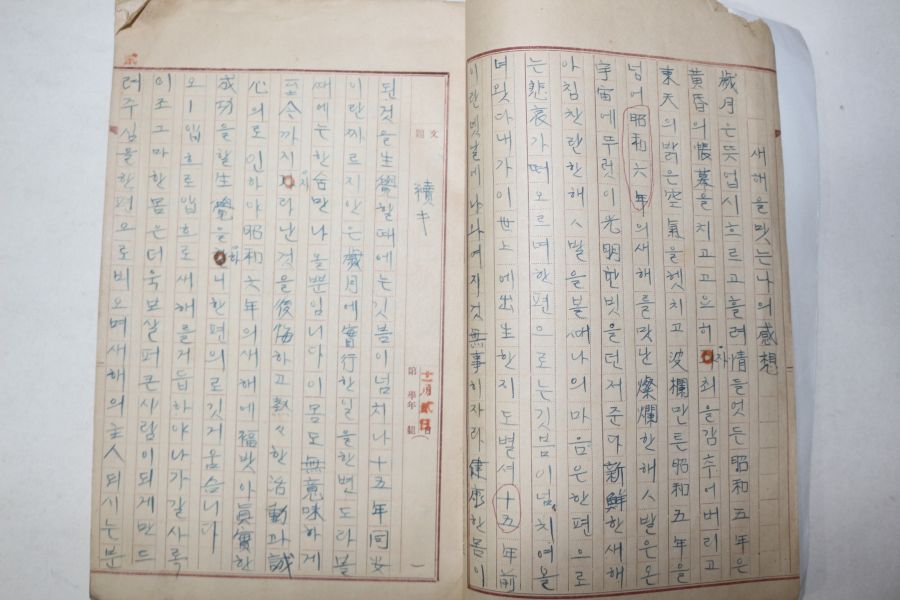 새해을 맛는 나의 感想
歲月은 뜻업시 흐르고 흘려 情들엇든 昭和五年은
黃昏의 帳幕을 치고 고요히 자최을 감추어 버리고
東天의 밝은 空氣을 헷치고 波欄만튼 昭和五年을
넘어 昭和六年의 새해를 맛난 燦爛한 해ㅅ발은 온
宇宙에 뚜렷이 光明한 빗을 던저준다 新鮮한 새해
아침 찬란한 해ㅅ발을 볼때 나의 마음은 한편으로
는 悲哀가 떠오르며 한편으로는 깃븜이 넘치여 올
며 왓다 내가 이 世上에 出生한지도 벌셔 十五年前
이란 녯날에 나와 여지것 無事히 자라 健康한 몸이
文題
續キ
十一月貳日
第 學年 組
된 것을 生覺할 때에는 깃븜이 넘치나 十五年同安
이란 짜르지 안은 歲月에 實行한 일을 한번 도라볼
때에는 한심만 나올 뿐입니다 이 몸도 無意味하게
至今까지 자라난 것을 後悔하고 熱々한 活動과 誠
心의로 인하야 昭和六年의 새해에 福밧아 眞實한
成功을 할 生覺을 하니 한편의로 깃거움습니다
오ー 입흐로 입흐로 새해를 거듭하야 나가갈사록
이 조그마한 몸은 더욱 보살펴 큰 사람이 되게 만드
려 주심을 한편 오로 비오며 새해의 主人 되시는 분
貳